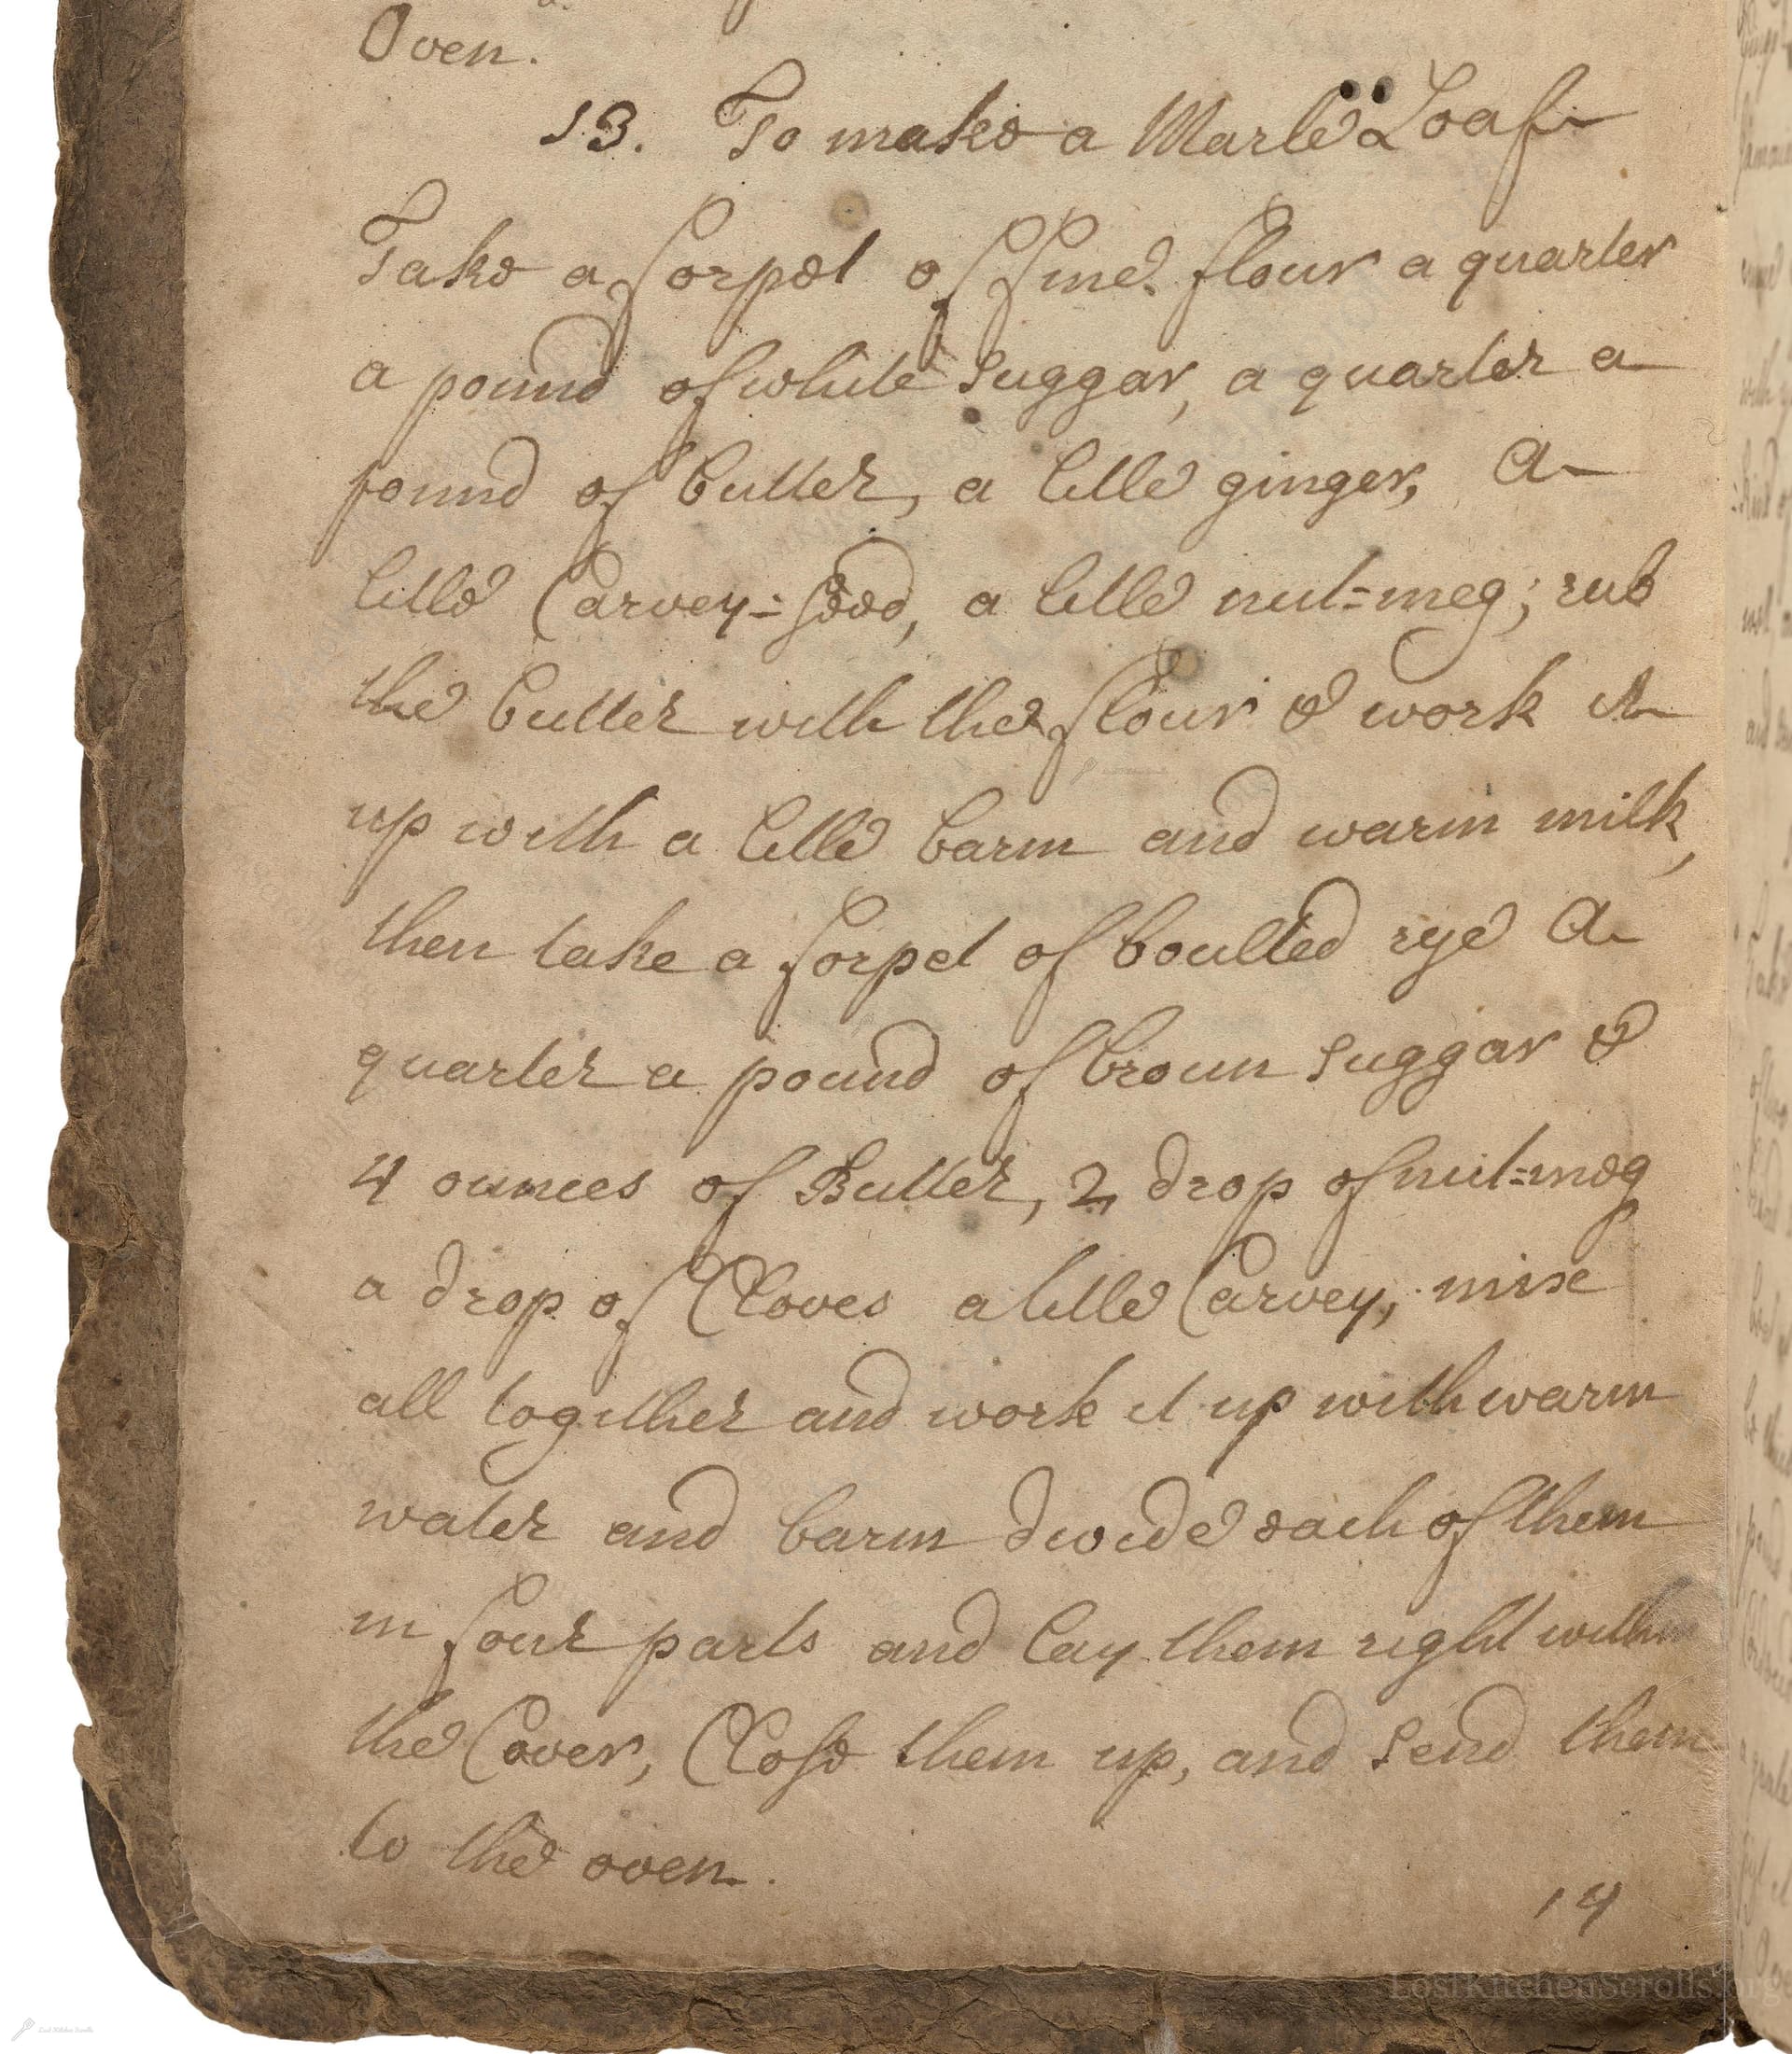 Oven.
13. To make a Marle Loaf
Take a forpet of fine flour a quarter
a pound of white Suggar, a quarter a
pound of butter, a little ginger, A
little Carvey=seed, a little nut=meg; rub
the butter with the flour & work it
up with a little barm and warm milk,
then take a forpet of boulted rye A
quarter a pound of broun Suggar &
4 ounces of Butter, 2 drop of nut=meg
a drop of Cloves a little Carvey, mixe
all together and work it up with warm
water and barm divide each of them
in four parts and lay them right within
the Cover, Close them up, and Send them
to the oven.
14
LostKitchenScrolls.org
Lost Kitchen Scrolls